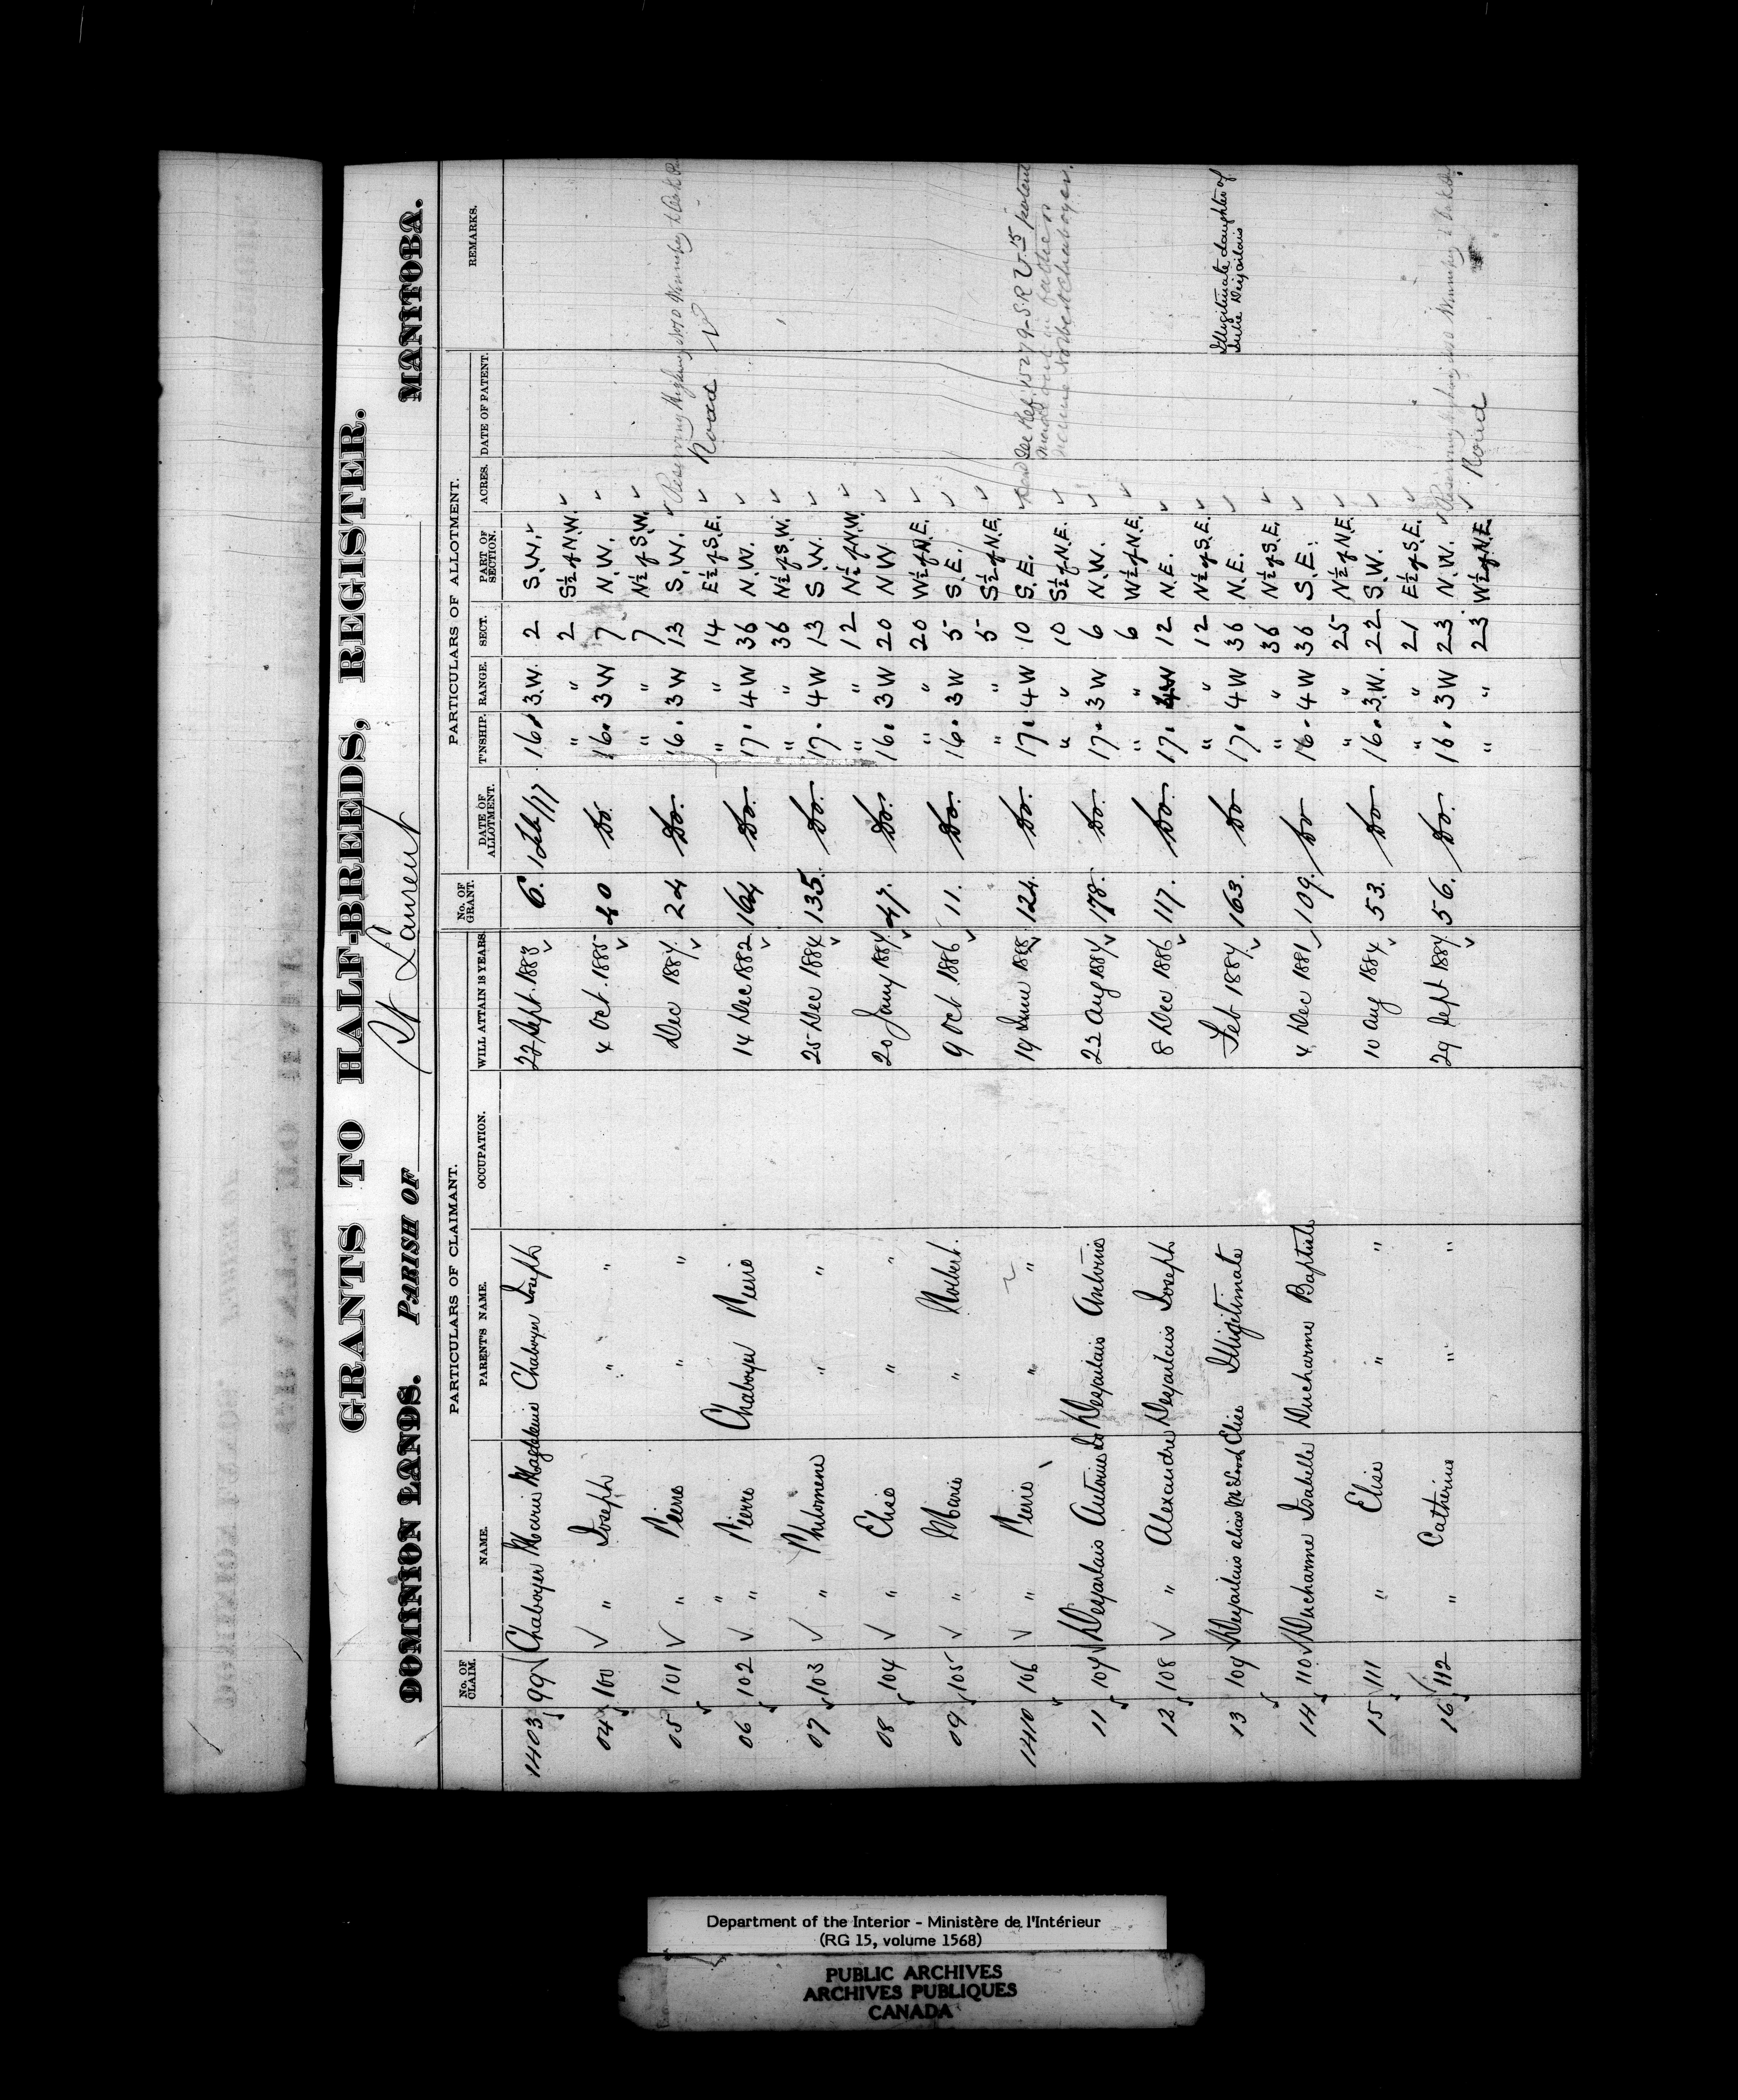 GRANTS TO HALF-BREEDS, REGISTER.
DOMINION LANDS. PARISH OF St Laurent MANITOBA.
PARTICULARS OF CLAIMANT. PARTICULARS OF ALLOTMENT.
No. OF CLAIM. NAME. PARENT'S NAME. OCCUPATION. WILL ATTAIN 18 YEARS. No. OF GRANT. DATE OF ALLOTMENT. T'NSHIP. RANGE. SECT. PART OF SECTION. ACRES. DATE OF PATENT. REMARKS.
1403 99 Chaboyer Marie Magdeleine Chaboyer Joseph 22 Sept. 1883 6. 1 Feb/77 16. 3.W. 2 S.W.
" " 2 S½ of N.W.
04 100 " Joseph " " 4 Oct. 1885 40 Do. 16. 3W 7 N.W.
" " 7 N½ of S.W.
05 101 " Pierre " " Dec 1884 24 Do. 16. 3W 13 S.W. Reserving Highway
" " " 14 E½ of S.E. Road
06 102 " Pierre Chaboyer Pierre 14 Dec 1882 164 Do. 17. 4W 36 N.W.
" " 36 N½ of S.W.
07 103 " Philomene " " 25 Dec 1884 135. Do. 17. 4W 13 S.W.
" " 12 N½ of N.W.
08 104 " Elise " " 20 Jany 1884 47. Do. 16. 3W 20 N.W
" " 20 W½ of N.E.
09 105 " Marie " Norbert. 9 Oct 1886 11. Do. 16. 3W 5 S.E.
" " 5 S½ of N.E.
1410 106 " Pierre " " 19 June 1888 124. Do. 17. 4W 10 S.E. Dead See Ref. 15279-S.R.V-15 patent
" " 10 S½ of N.E. made out in father's
name Norbert Chaboyer.
11 107 Desjarlais Antoine Desjarlais Antoine 22 Aug 1884 178. Do. 17. 3W 6 N.W.
" " 6 W½ of N.E.
12 108 " Alexandre Desjarlais Joseph 8 Dec 1886 117. Do. 17. 4W 12 N.E.
" " 12 N½ of S.E.
13 109 Desjarlais alias McLeod Elise Illigitimate Feb 1884 163. Do 17. 4W 36 N.E. Illigitimate daughter of
Julie Desjarlais
" " 36 N½ of S.E.
14 110 Ducharme Isabelle Ducharme Baptiste 4 Dec 1881 109. Do 16. 4W 36 S.E.
" " 25 N½ of N.E.
15 111 " Elise " " 10 Aug 1884 53. Do 16. 3W. 22 S.W.
" " 21 E½ of S.E.
16 112 " Catherine " " 29 Sept 1884 56. Do. 16. 3W 23 N.W. Reserving Highway
" " 23 W½ of N.E. Road
Department of the Interior - Ministère de l'Intérieur
(RG 15, volume 1568)
PUBLIC ARCHIVES
ARCHIVES PUBLIQUES
CANADA